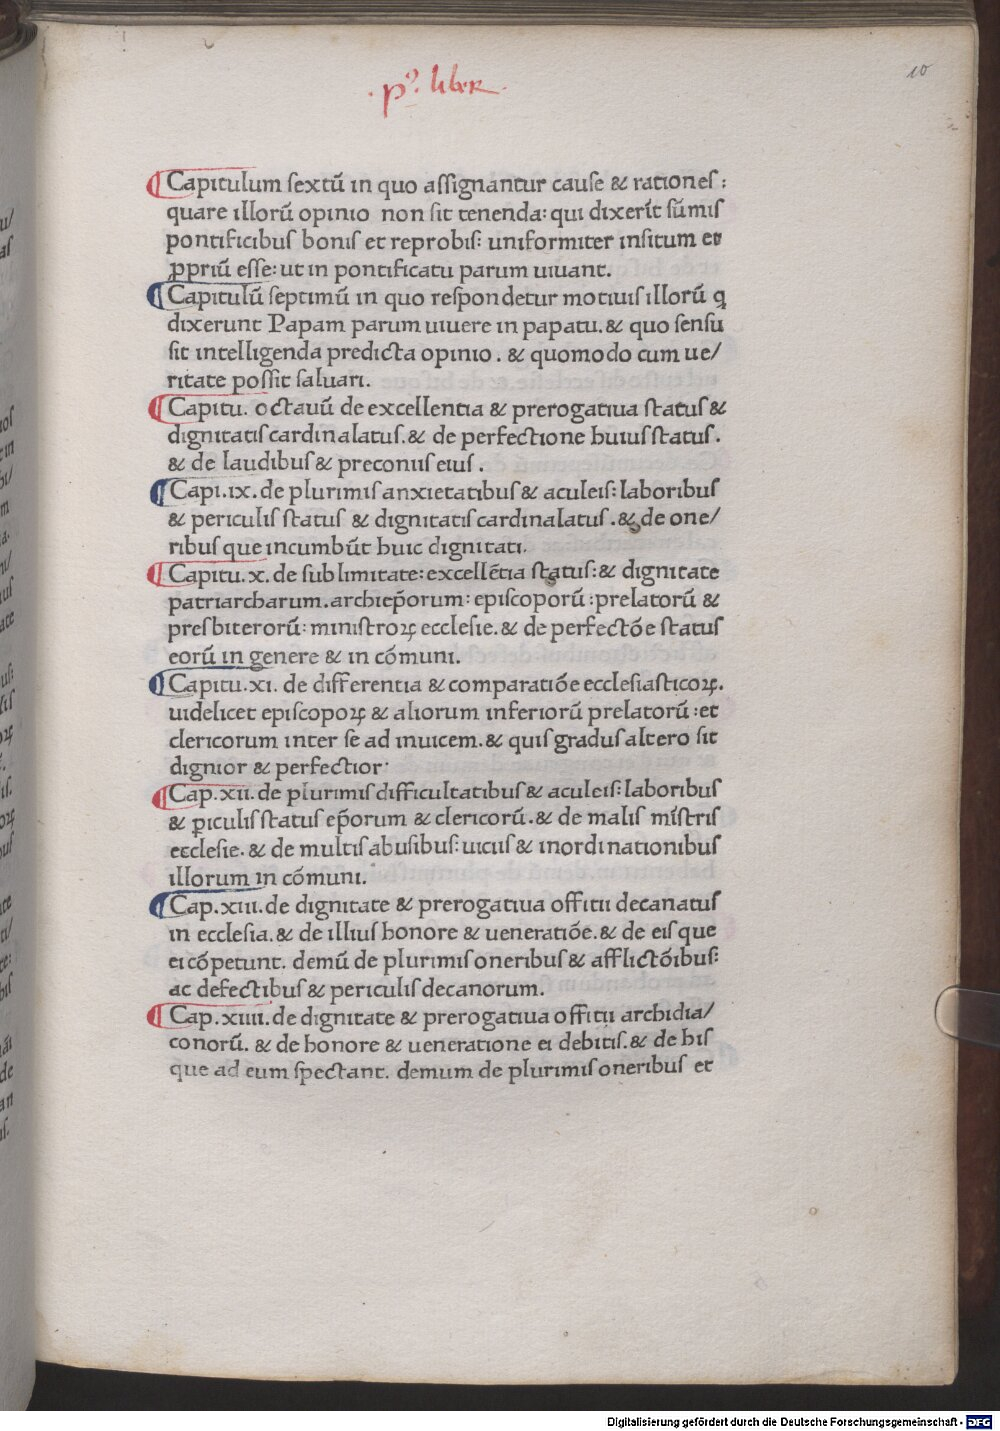 .pº. liber.
10
¶ Capitulum ſextū in quo aſſignantur cauſe & rationeſ:
quare illorū opinio non ſit tenenda: qui dixerīt ſūmiſ
pontificibuſ boniſ et reprobiſ: uniformiter inſitum et
ꝓpriū eſſe: ut in pontificatu parum uiuant.
¶ Capitulū ſeptimū in quo reſpondetur motiuiſ illorū q
dixerunt Papam parum uiuere in papatu. & quo ſenſu
ſit intelligenda predicta opinio. & quomodo cum ue/
ritate poſſit ſaluari.
¶ Capitu. octauū de excellentia & prerogatiua ſtatuſ &
dignitatiſ cardinalatuſ. & de perfectione huiuſ ſtatuſ.
& de laudibuſ & preconiiſ eiuſ.
¶ Capi. ix. de plurimiſ anxietatibuſ & aculeiſ: laboribuſ
& periculiſ ſtatuſ & dignitatiſ cardinalatuſ. & de one/
ribuſ que incumbūt huic dignitati.
¶ Capitu. x. de ſublimitate: excellētia ſtatuſ: & dignitate
patriarcharum. archiep̄orum: epiſcoporū: prelatorū &
preſbiterorū: miniſtroꝝ eccleſie. & de perfectōe ſtatuſ
eorū in genere & in cōmuni.
¶ Capitu. xi. de differentia & comparatiōe eccleſiaſticoꝝ.
uidelicet epiſcopoꝝ & aliorum inferiorū prelatorū: et
clericorum inter ſe ad inuicem. & quiſ graduſ altero ſit
dignior & perfectior·
¶ Cap. xii. de plurimiſ difficultatibuſ & aculeiſ: laboribuſ
& ꝑiculiſ ſtatuſ ep̄orum & clericorū. & de maliſ mīſtriſ
eccleſie. & de multiſ abuſibuſ: uiciiſ & inordinationibuſ
illorum in cōmuni.
¶ Cap. xiii. de dignitate & prerogatiua offitii decanatuſ
in eccleſia. & de illiuſ honore & ueneratiōe. & de eiſ que
ei cōpetunt. demū de plurimiſ oneribuſ & afflictōibuſ:
ac defectibuſ & periculiſ decanorum.
¶ Cap. xiiii. de dignitate & prerogatiua offitii archidia/
conorū. & de honore & ueneratione ei debitiſ. & de hiſ
que ad eum ſpectant. demum de plurimiſ oneribuſ et
Digitalisierung gefördert durch die Deutsche Forschungsgemeinschaft - DFG